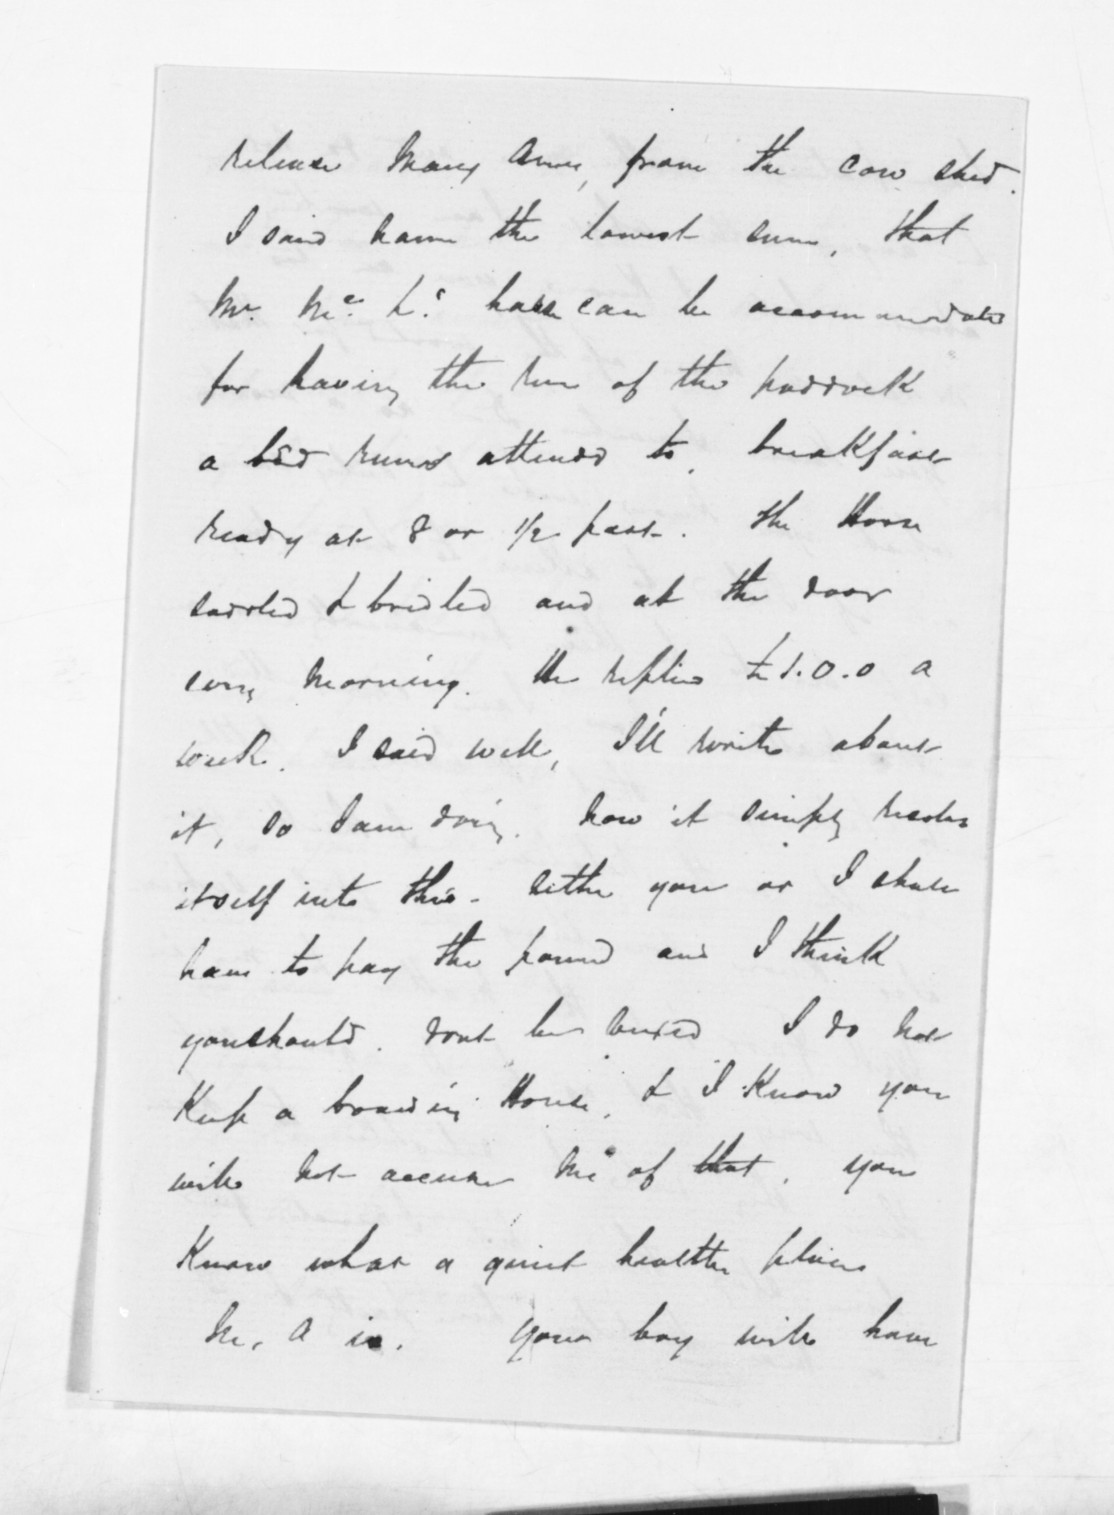 release Mary Anne, from the cow shed.
I said name the lowest sum, that
Mr. Mc. L's horse can be accommodated
for having the run of the paddock
a bed attended to, breakfast
ready at 8 or ½ past. the Horse
saddled & bridled and at the door
every morning. He replies £1.0.0 a
week. I said well, I'll write about
it, so I am doing. now it simply resolves
itself into this. either you or I shall
have to pay the pound and I think
you should. dont be I do not
Keep a boarding House, & I Know you
will not accuse me of that, you
Know what a quiet healthy place
M. A is. your boy will have